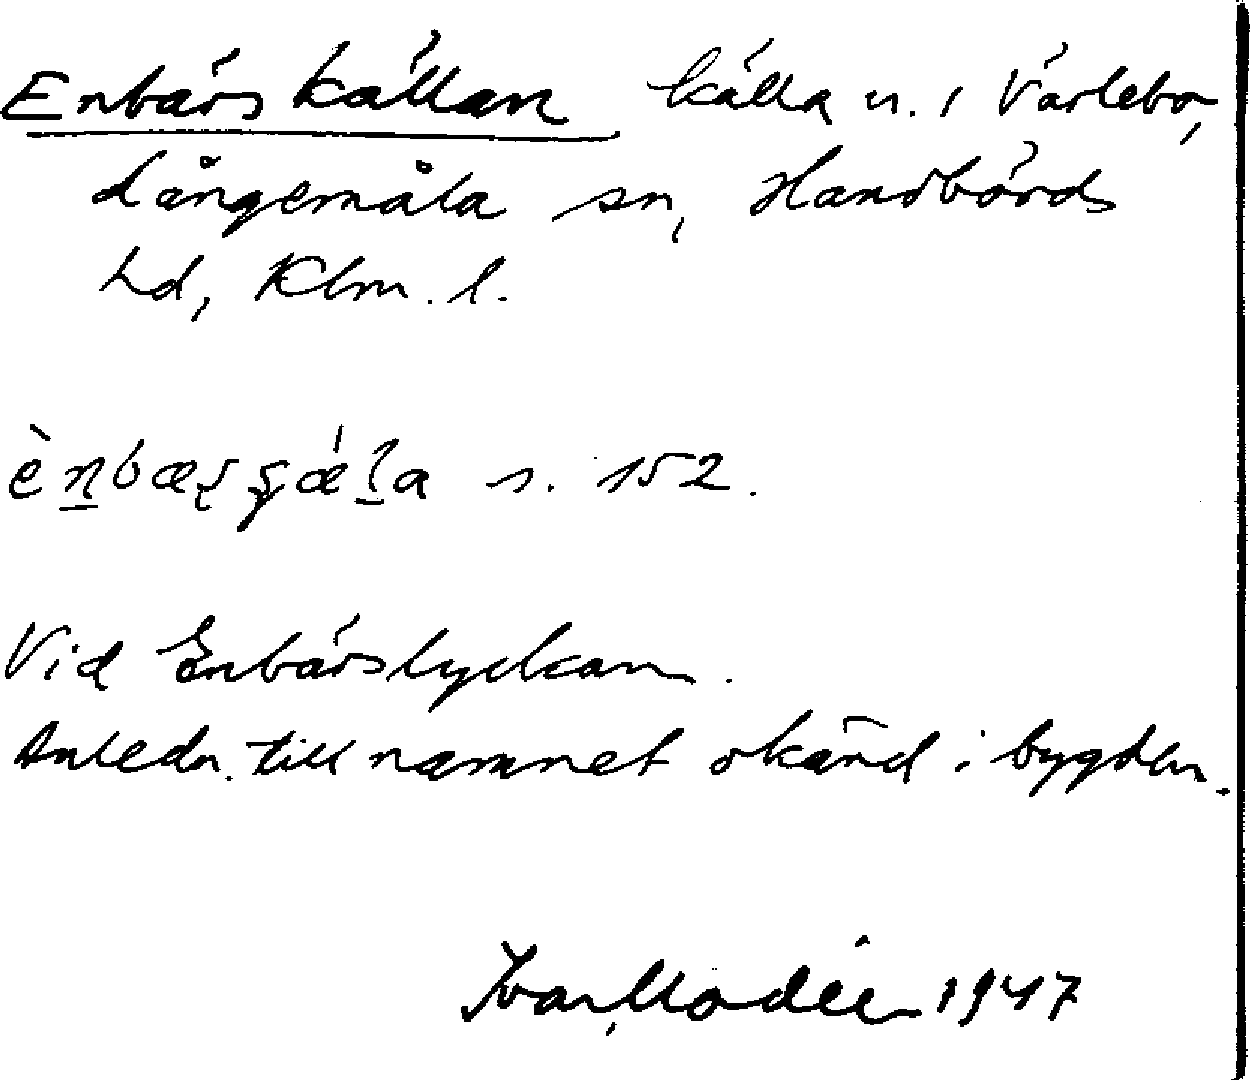 Enbärskällan källa n. i Värlebo,
Långemåla sn, Handbörds
hd, Klm. l.
èn̲bæʂɟǽl̲a s. 152.
Vid Enbärslyckan.
Anledn. till namnet okänd i bygden.
Ivar Modéer 1947